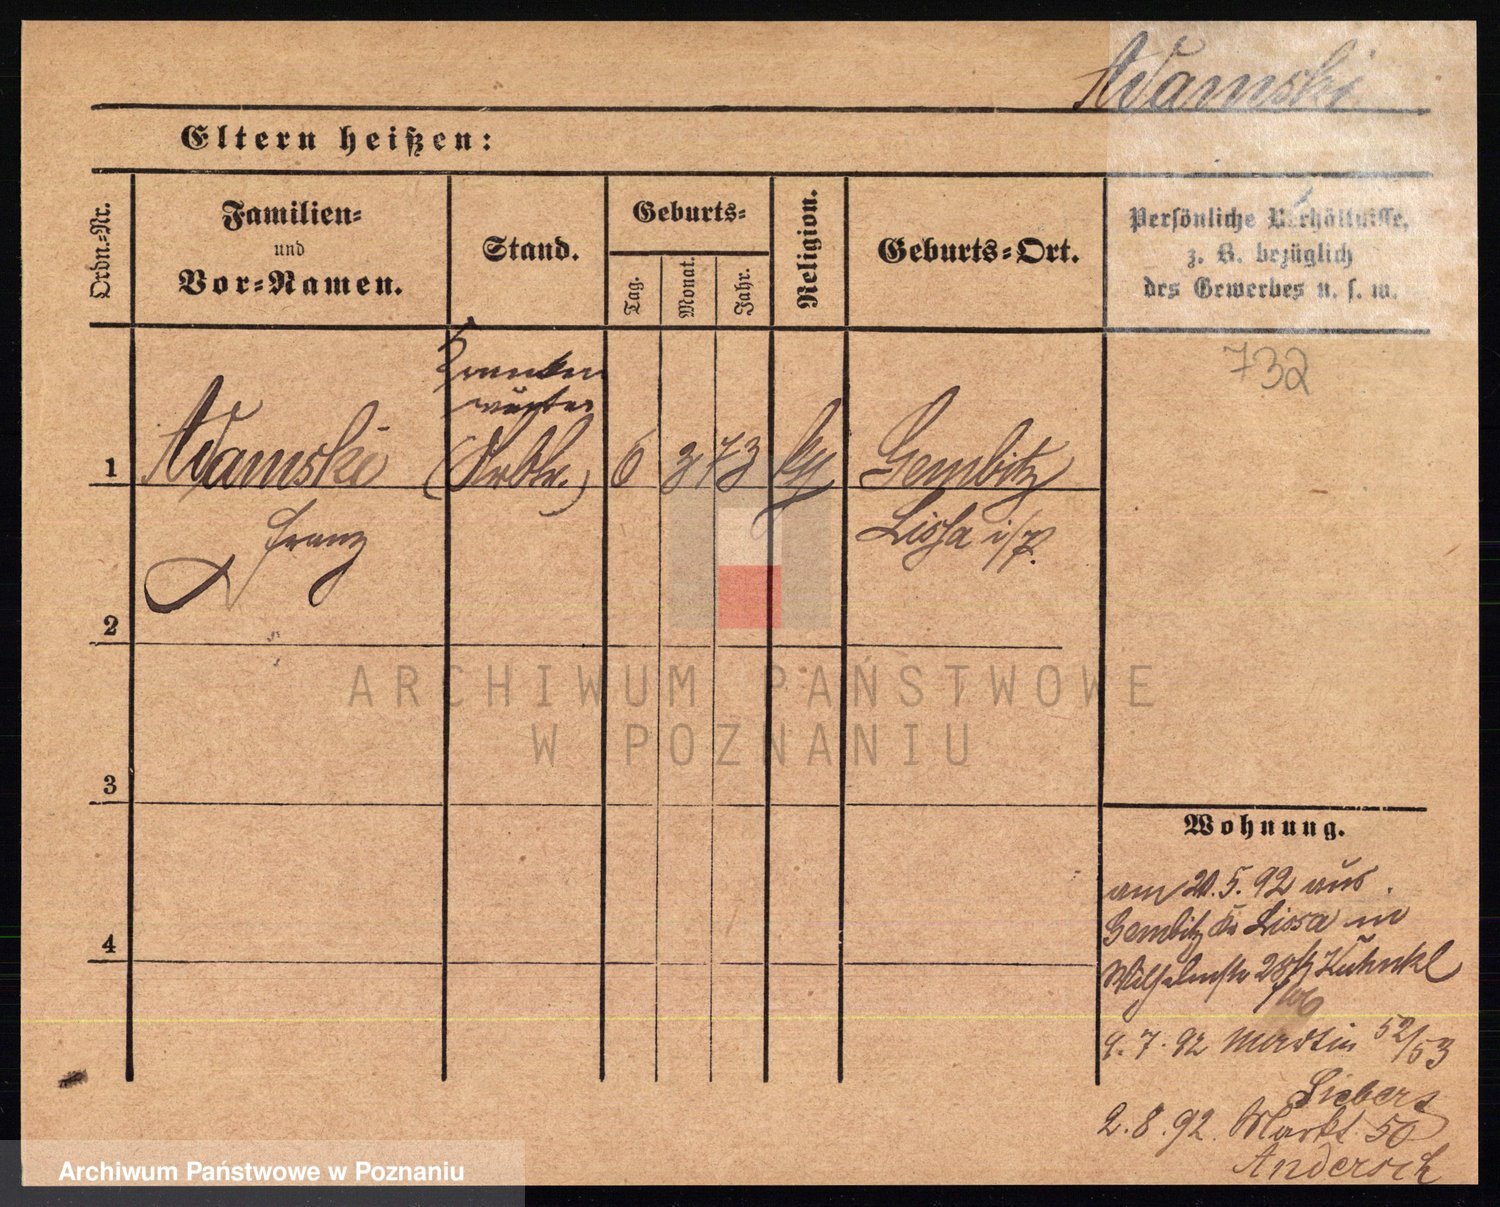 Adamski
Eltern heißen:
Ordn.-Nr.
Familien-
und
Vor-Namen.
Stand.
Geburts-
Tag.
Monat.
Jahr.
Religion.
Geburts-Ort.
Persönliche Verhältnisse,
z. B. bezüglich
des Gewerbes u. s. w.
732
Kranken
wärter
1 Adamski (Arbtr.) 6 3 73 kth Gembitz
Franz Lissa i/P.
2
3
4
Wohnung.
am 21.5.92 aus
Gembitz Kr Lissa in
Wilhelmstr 28 Kuhnkel
9.7.92 Martin 52/53
Siebert
2.8.92. Markt 50
Andersch
ARCHIWUM PAŃSTWOWE
W POZNANIU
Archiwum Państwowe w Poznaniu